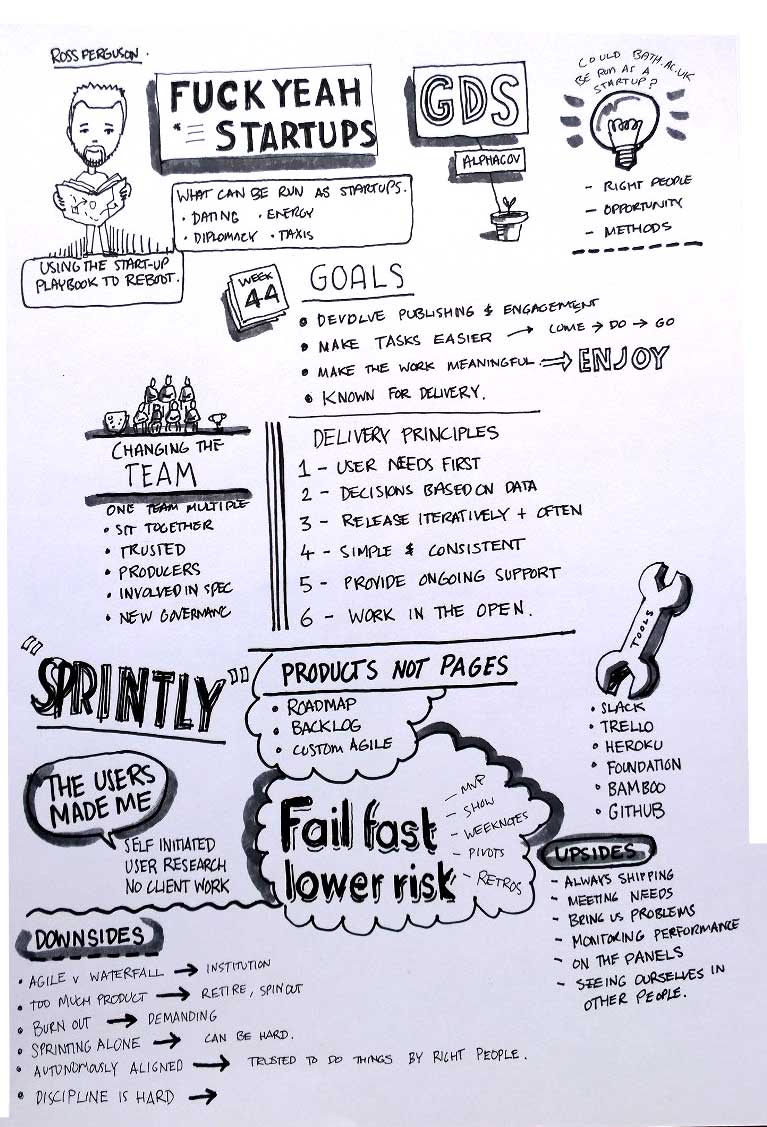 ROSS FERGUSON.
FUCK YEAH
STARTUPS
WHAT CAN BE RUN AS STARTUPS.
• DATING • ENERGY
• DIPLOMACY • TAXIS
USING THE START-UP
PLAYBOOK TO REBOOT.
GDS
ALPHAGOV
COULD BATH.AC.UK
BE RUN AS A
STARTUP?
- RIGHT PEOPLE
- OPPORTUNITY
- METHODS
WEEK
44
GOALS
• DEVOLVE PUBLISHING & ENGAGEMENT
• MAKE TASKS EASIER → COME → DO → GO
• MAKE THE WORK MEANINGFUL ⇒ ENJOY
• KNOWN FOR DELIVERY.
CHANGING THE
TEAM
ONE TEAM MULTIPLE
• SIT TOGETHER
• TRUSTED
• PRODUCERS
• INVOLVED IN SPEC
• NEW GOVERNANC
DELIVERY PRINCIPLES
1 - USER NEEDS FIRST
2 - DECISIONS BASED ON DATA
3 - RELEASE ITERATIVELY + OFTEN
4 - SIMPLE & CONSISTENT
5 - PROVIDE ONGOING SUPPORT
6 - WORK IN THE OPEN.
TOOLS
• SLACK
• TRELLO
• HEROKU
• FOUNDATION
• BAMBOO
• GITHUB
"SPRINTLY"
PRODUCTS NOT PAGES
• ROADMAP
• BACKLOG
• CUSTOM AGILE
THE USERS
MADE ME
SELF INITIATED
USER RESEARCH
NO CLIENT WORK
Fail fast
lower risk
- MVP
- SHOW
- WEEKNOTES
- PIVOTS
- RETROS
UPSIDES
- ALWAYS SHIPPING
- MEETING NEEDS
- BRING US PROBLEMS
- MONITORING PERFORMANCE
- ON THE PANELS
- SEEING OURSELVES IN
OTHER PEOPLE.
DOWNSIDES
• AGILE v WATERFALL → INSTITUTION
• TOO MUCH PRODUCT → RETIRE, SPIN OUT
• BURN OUT → DEMANDING
• SPRINTING ALONE → CAN BE HARD.
• AUTONOMOUSLY ALIGNED → TRUSTED TO DO THINGS BY RIGHT PEOPLE.
• DISCIPLINE IS HARD →